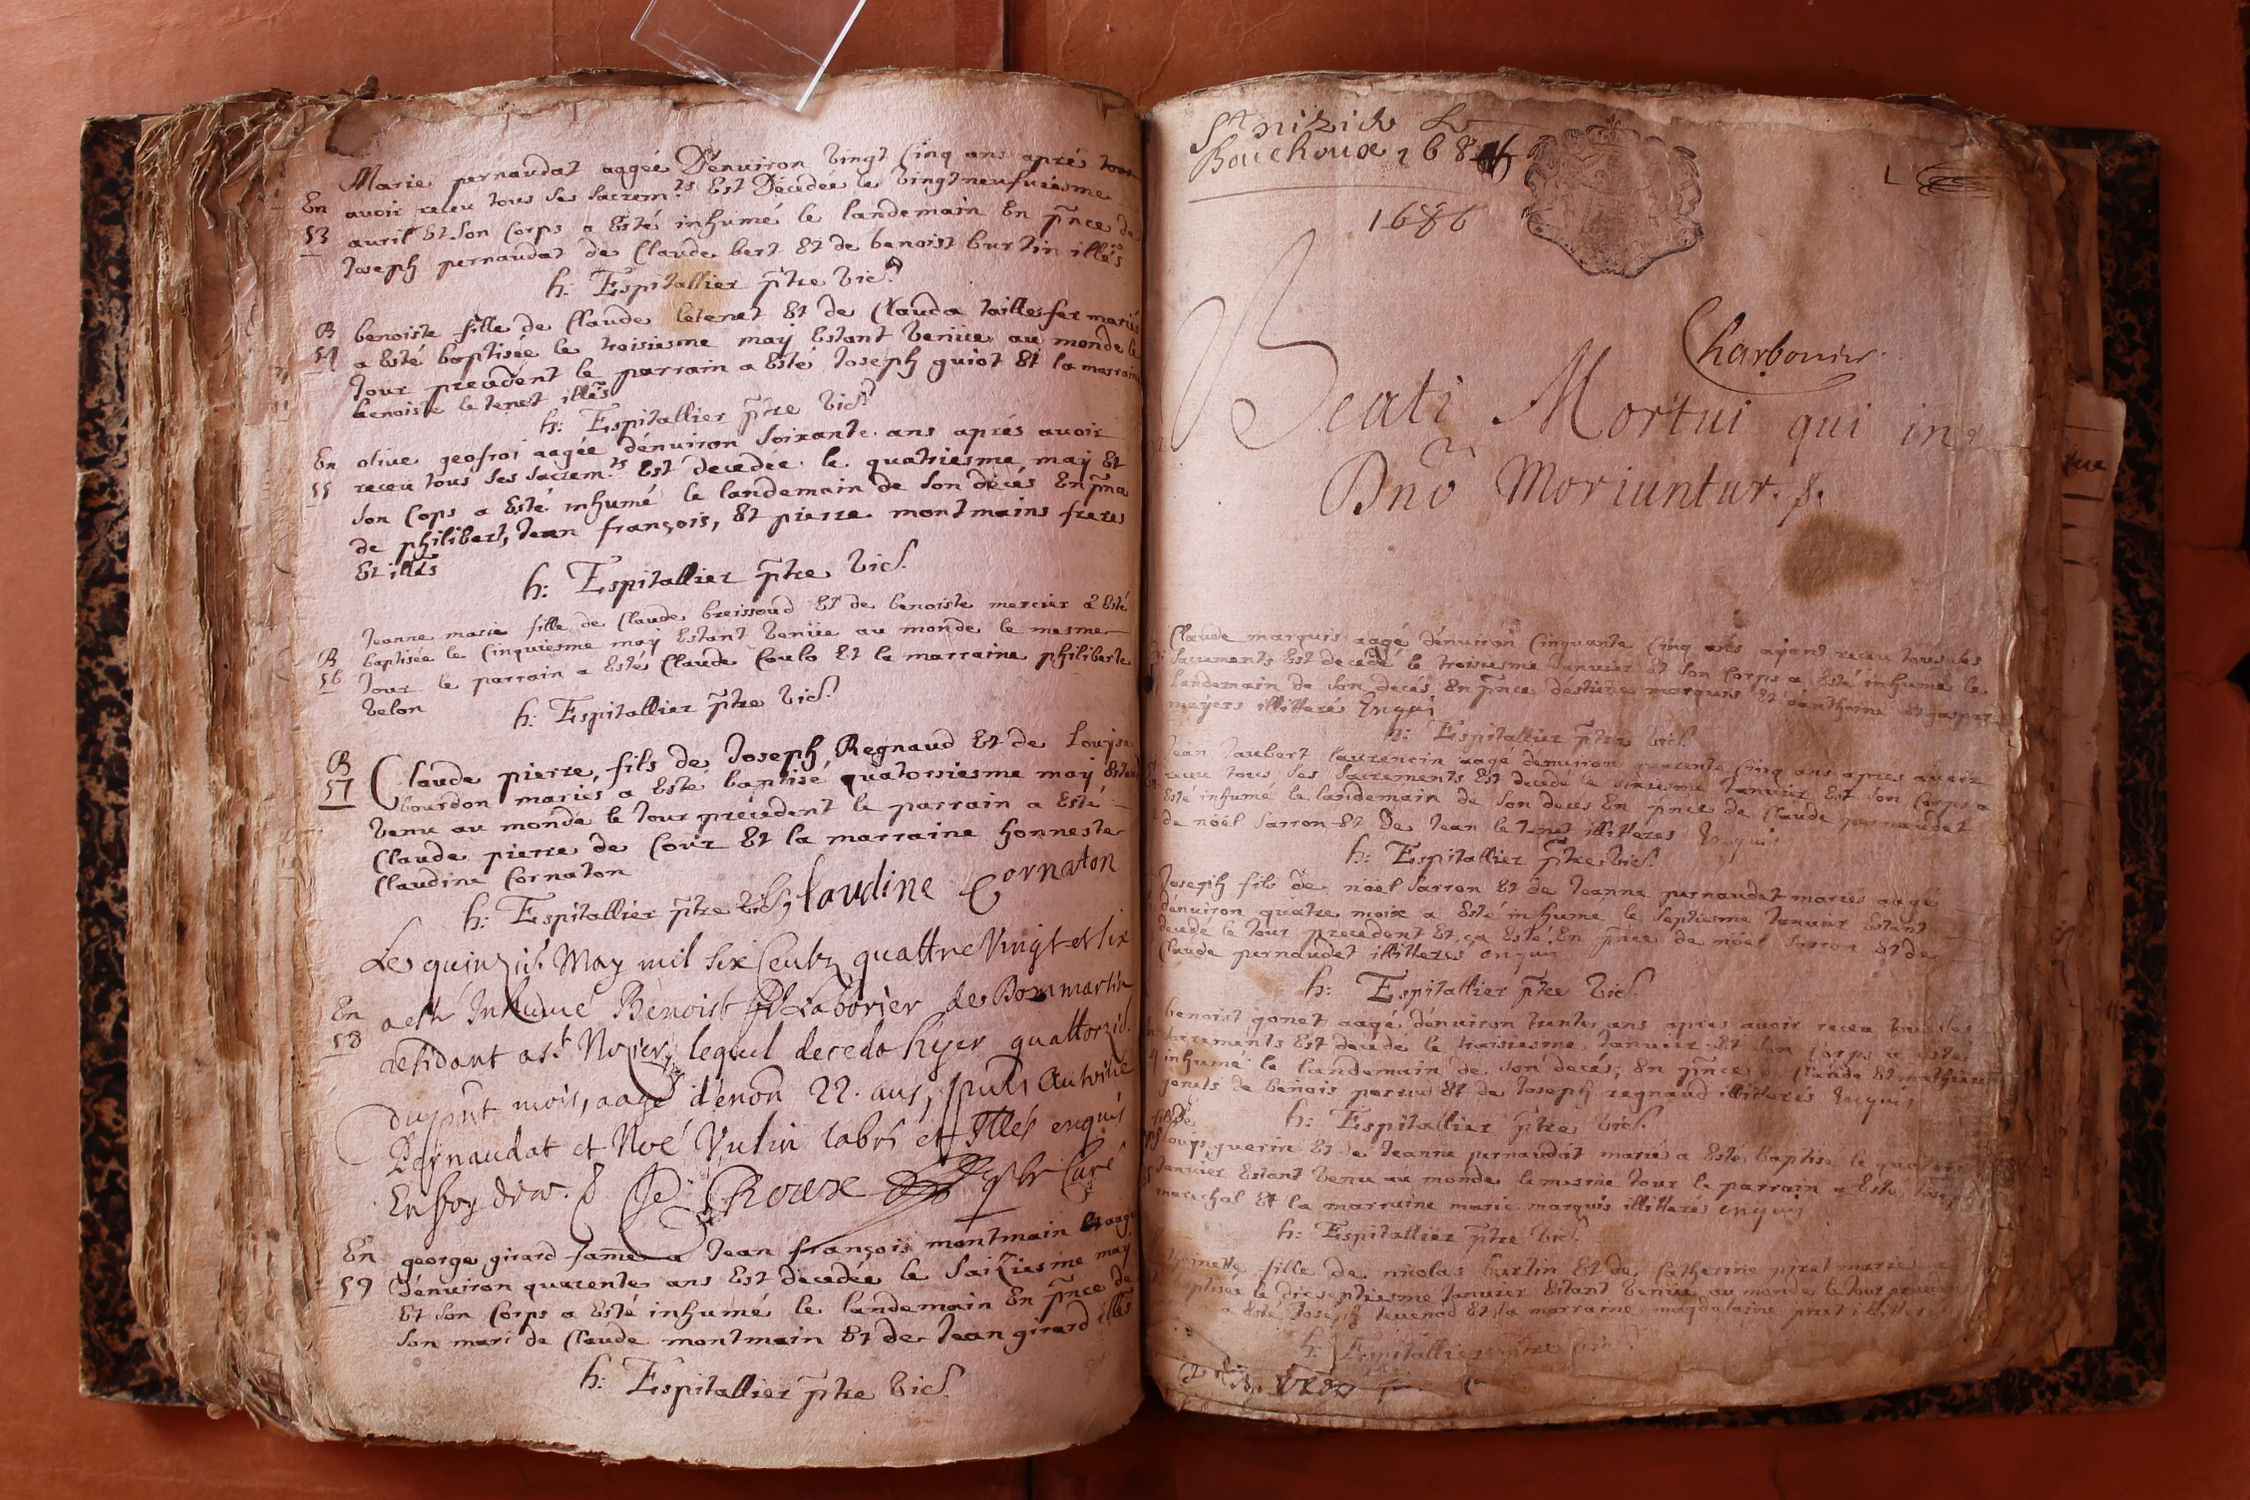 Marie pernaudat aagée Dénuiron vingt Cinq ans aprés
En avoir receu tous ses sacrem.ts Est Décedée le vingtneufuiesme
53 auril Et son Corps a Esté inhumé le landemain En p̃nce de
Joseph pernaudat de Claude bert Et de benoist burtin illés
h: Espitallier p̃tre vic.
B benoiste fille de Claude letenet Et de Clauda taillefer mariés
54 a Esté baptisée le troisiesme may Estant venüe au monde le
Jour precedent le parrain a Esté Joseph guiot Et la marraine
benoiste letenet illés
h: Espitallier p̃tre vic.
En olive geofroi aagée dénuiron soixante ans aprés avoir
55 receu tous ses sacrem.ts Est decedée le quatriesme may Et
son Cops a Esté inhumé le landemain de son décés En p̃nce
de philibert, Jean françois, Et pierre montmains freres
Et illés
h: Espitallier p̃tre vic.
Jeanne marie fille de Claude breissoud Et de benoiste mercier a Esté
B baptisée le Cinquiesme may Estant venüe au monde le mesme
56 Jour le parrain a Esté Claude Coulo Et la marraine philiberte
velon
h: Espitallier p̃tre vic.
B Claude pierre, fils de Joseph Regnaud Et de Louise
57 bourdon mariés a Esté baptisé quatorsiesme may Estant
venu au monde le Jour précédent le parrain a Esté
Claude pierre de Coür Et la marraine honneste
Claudine Cornaton
h: Espitallier p̃tre vic. Claudine Cornaton
Le quinzie. May mil six Centz quattre Vingt et six
En a esté Inhumé Benoist Laborier de Dommartin
58 residant a s.t Nizier, lequel deceda hyer quattorzie.
du p̃nt mois, aagé d'enon̄ 22. ans, p̃nts Antoine
Pernaudat et Noé Vulin labrs et Illés enquis
En foy de ce. Roux curé
En george girard fame a Jean françois montmain aagée
59 dénuiron quarente ans Est decedée le saiziesme may
Et son Corps a Esté inhumé le landemain En p̃nce de
son mari de Claude montmain Et de Jean girard illés
h: Espitallier p̃tre vic.
S.t nizié le
Bouchoux 1686
1686
Charbonier
Beati Mortui qui in
Dnō Moriuntur.
Claude marquis aagé dénuiron Cinquante Cinq ans ayant receu tous ses
sacrements Est decedé le troisiesme Januier Et son Corps a Esté inhumé le
landemain de son decés En p̃nce déstienne marquis Et dánthoine Et gaspar
mayers illitterés Enquis
h: Espitallier p̃tre vic.
Jean Jaubert laurencin aagé dénuiron quarente Cinq ans apres avoir
receu tous ses sacrements Est decedé le sixiesme Januier Et son Corps a
Esté inhumé le landemain de son deces En p̃nce de Claude pernaudat
de nöel sarron Et De Jean letenet illitterés Enquis
h: Espitallier p̃tre vic.
Joseph fils de nöel sarron Et de Jeanne pernaudat mariés aagé
dénuiron quatre mois a Esté inhumé le septiesme Januier Estant
decedé le Jour precedent Et ça Esté En p̃nce de nöel sarron Et de
Claude pernaudat illitterés enquis
h: Espitallier p̃tre vic.
benoist gonet aagé dénuiron trente ans apres avoir receu tous ses
sacrements Est decedé le traisiesme Januier Et son Corps a Esté
4 inhumé le landemain de son decés, En p̃nce de Claude Et mathieu
gonets de benois perrin Et de Joseph regnaud illitterés Enquis
h: Espitallier p̃tre vic.
fils de
Loup guerin Et de Jeanne pernaudat marié a Esté baptisé le
Januier Estant venu au monde le mesme Jour le parrain a Esté
marechal Et la marraine marie marquis illitterés enquis
h: Espitallier p̃tre vic.
fille de nicolas burtin Et de Catherine piret mariés
baptisée le dixseptiesme Januier Estant venüe au monde le Jour precedent
a Esté Joseph tevenod Et la marraine magdelaine piret illitterés
h: Espitallier p̃tre vic.